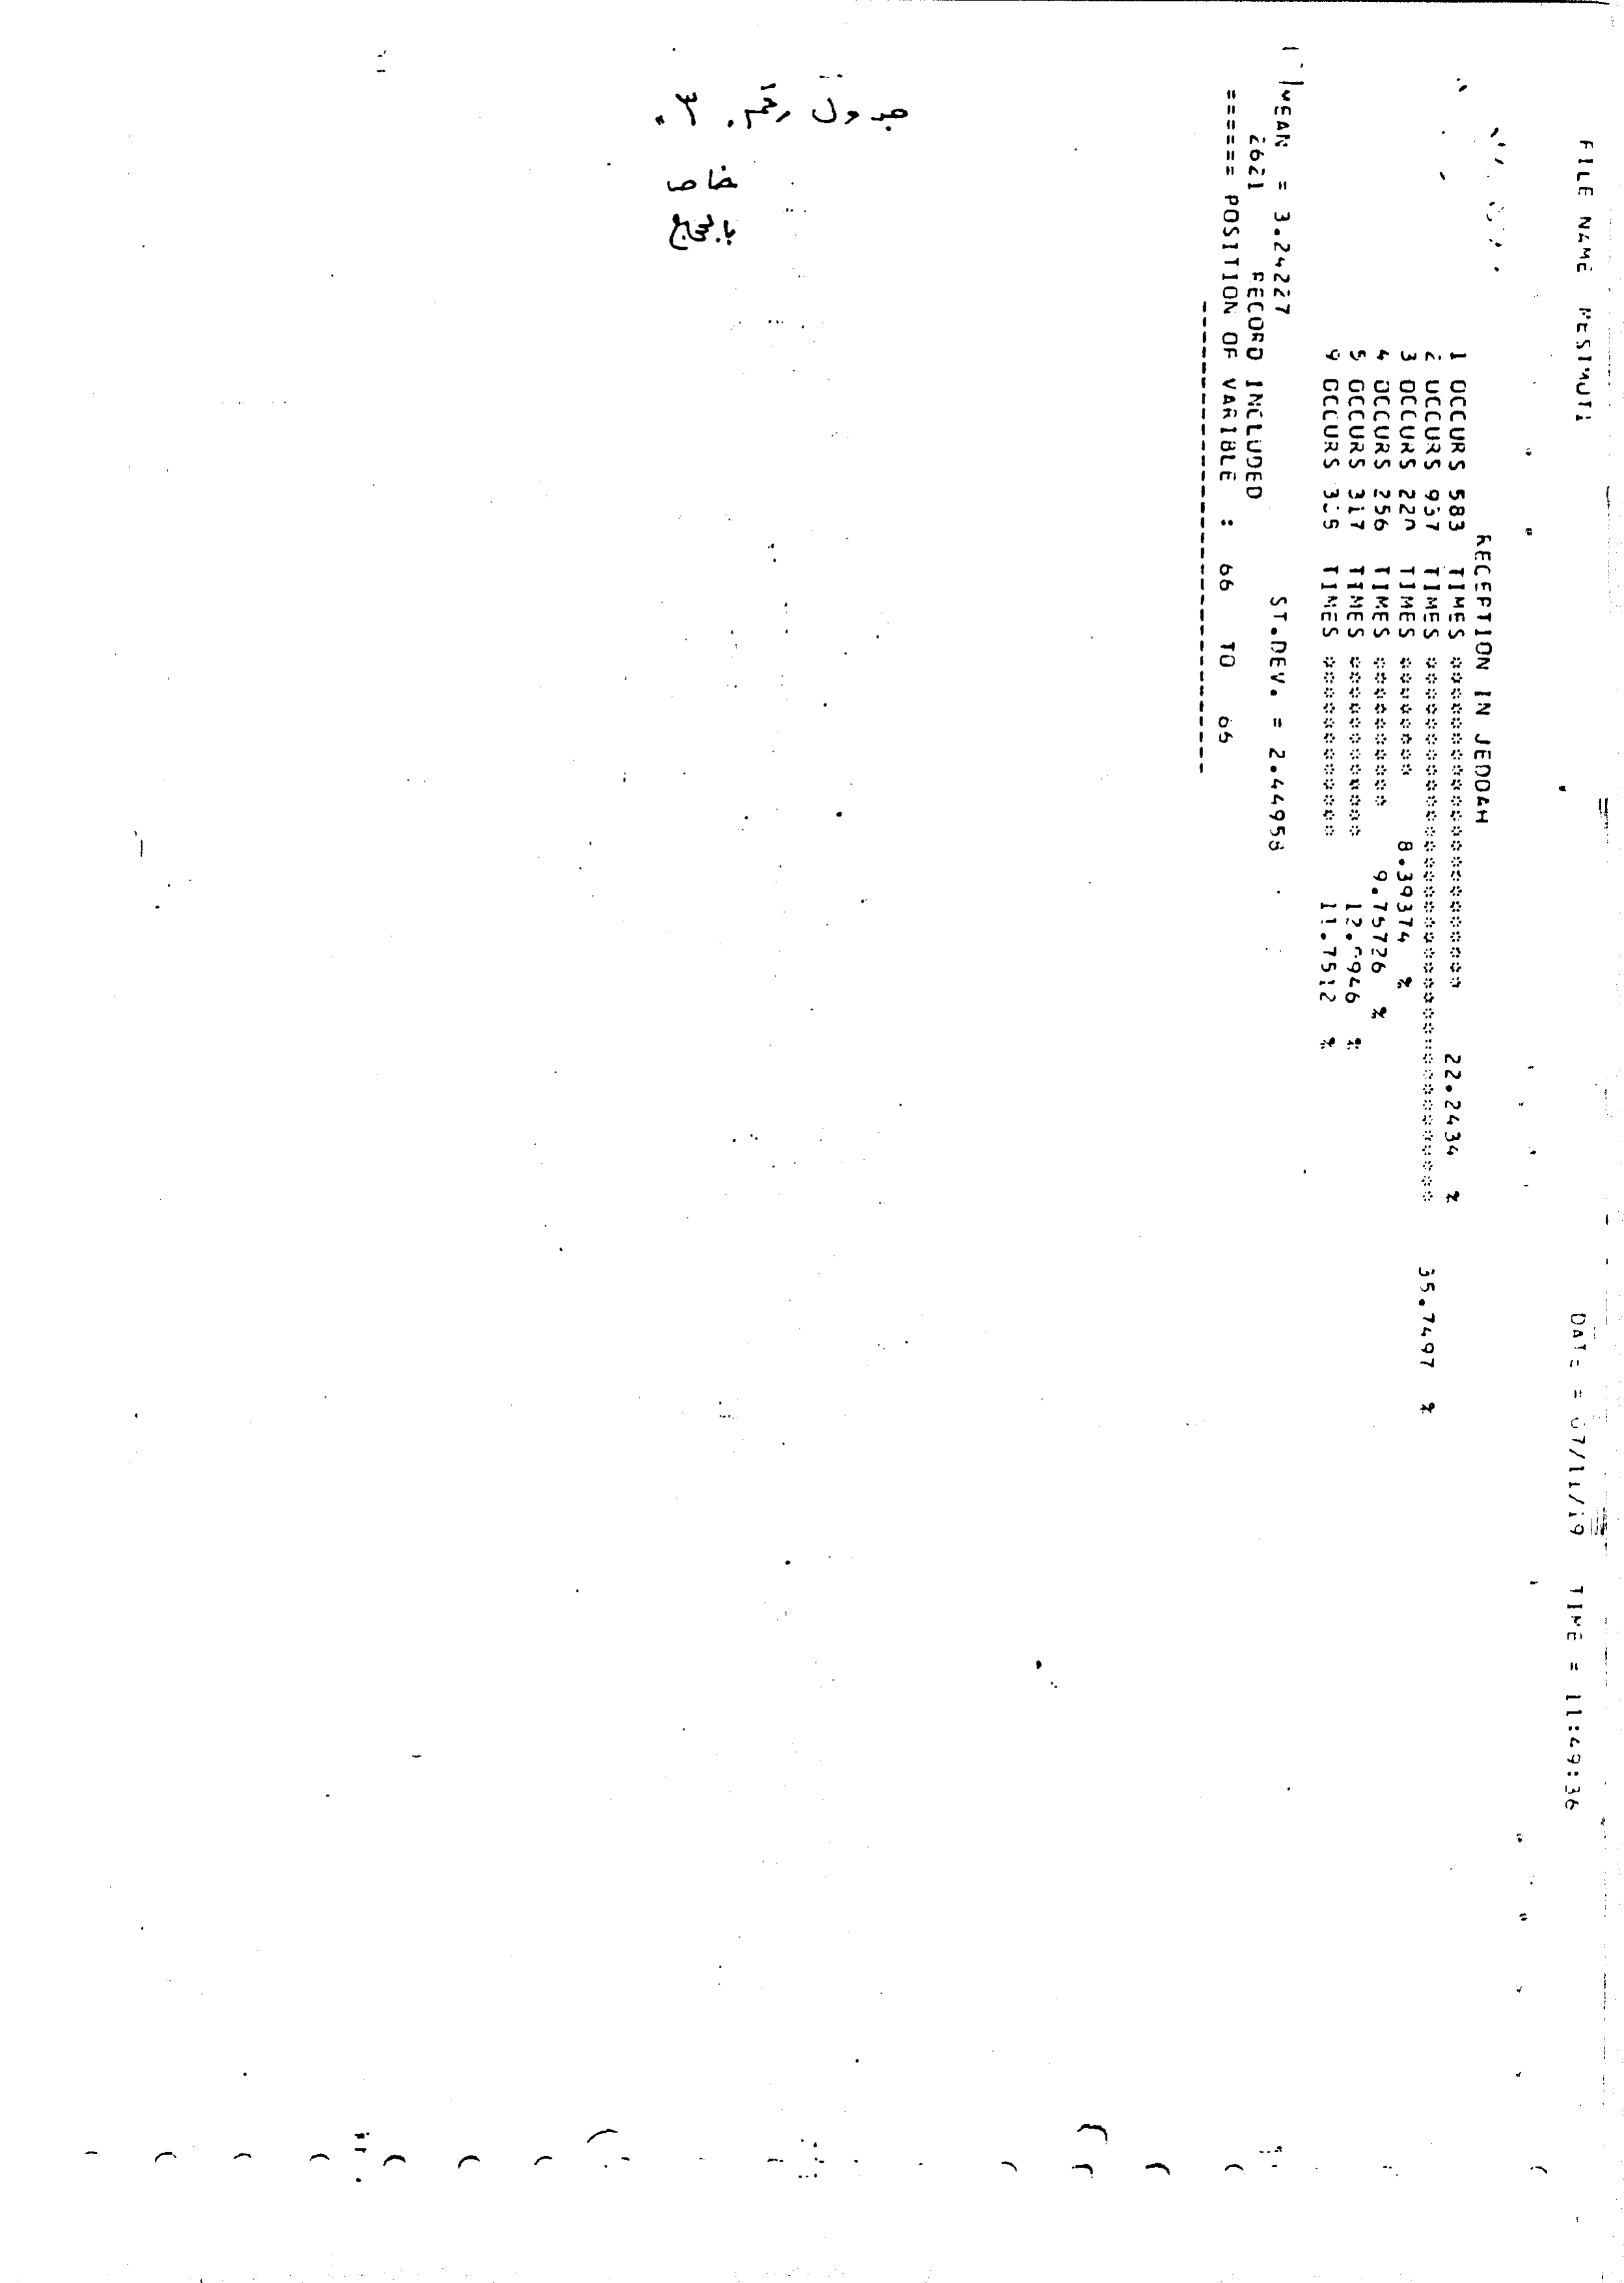 جدول رقم ٣٠
خاص
بالحجاج
FILE NAME
DATE = TIME = 11:49:36
RECEPTION IN JEDDAH
1 OCCURS 583 TIMES ********************** 22.2434 %
2 OCCURS 937 TIMES *********************************** 35.7497 %
3 OCCURS 220 TIMES ******** 8.39374 %
4 OCCURS 256 TIMES ********** 9.76726 %
5 OCCURS 317 TIMES ************ 12.0946 %
9 OCCURS 308 TIMES ************ 11.7512 %
MEAN = 3.24227 ST.DEV. = 2.44958
2621 RECORD INCLUDED
====== POSITION OF VARIBLE : 66 TO 66